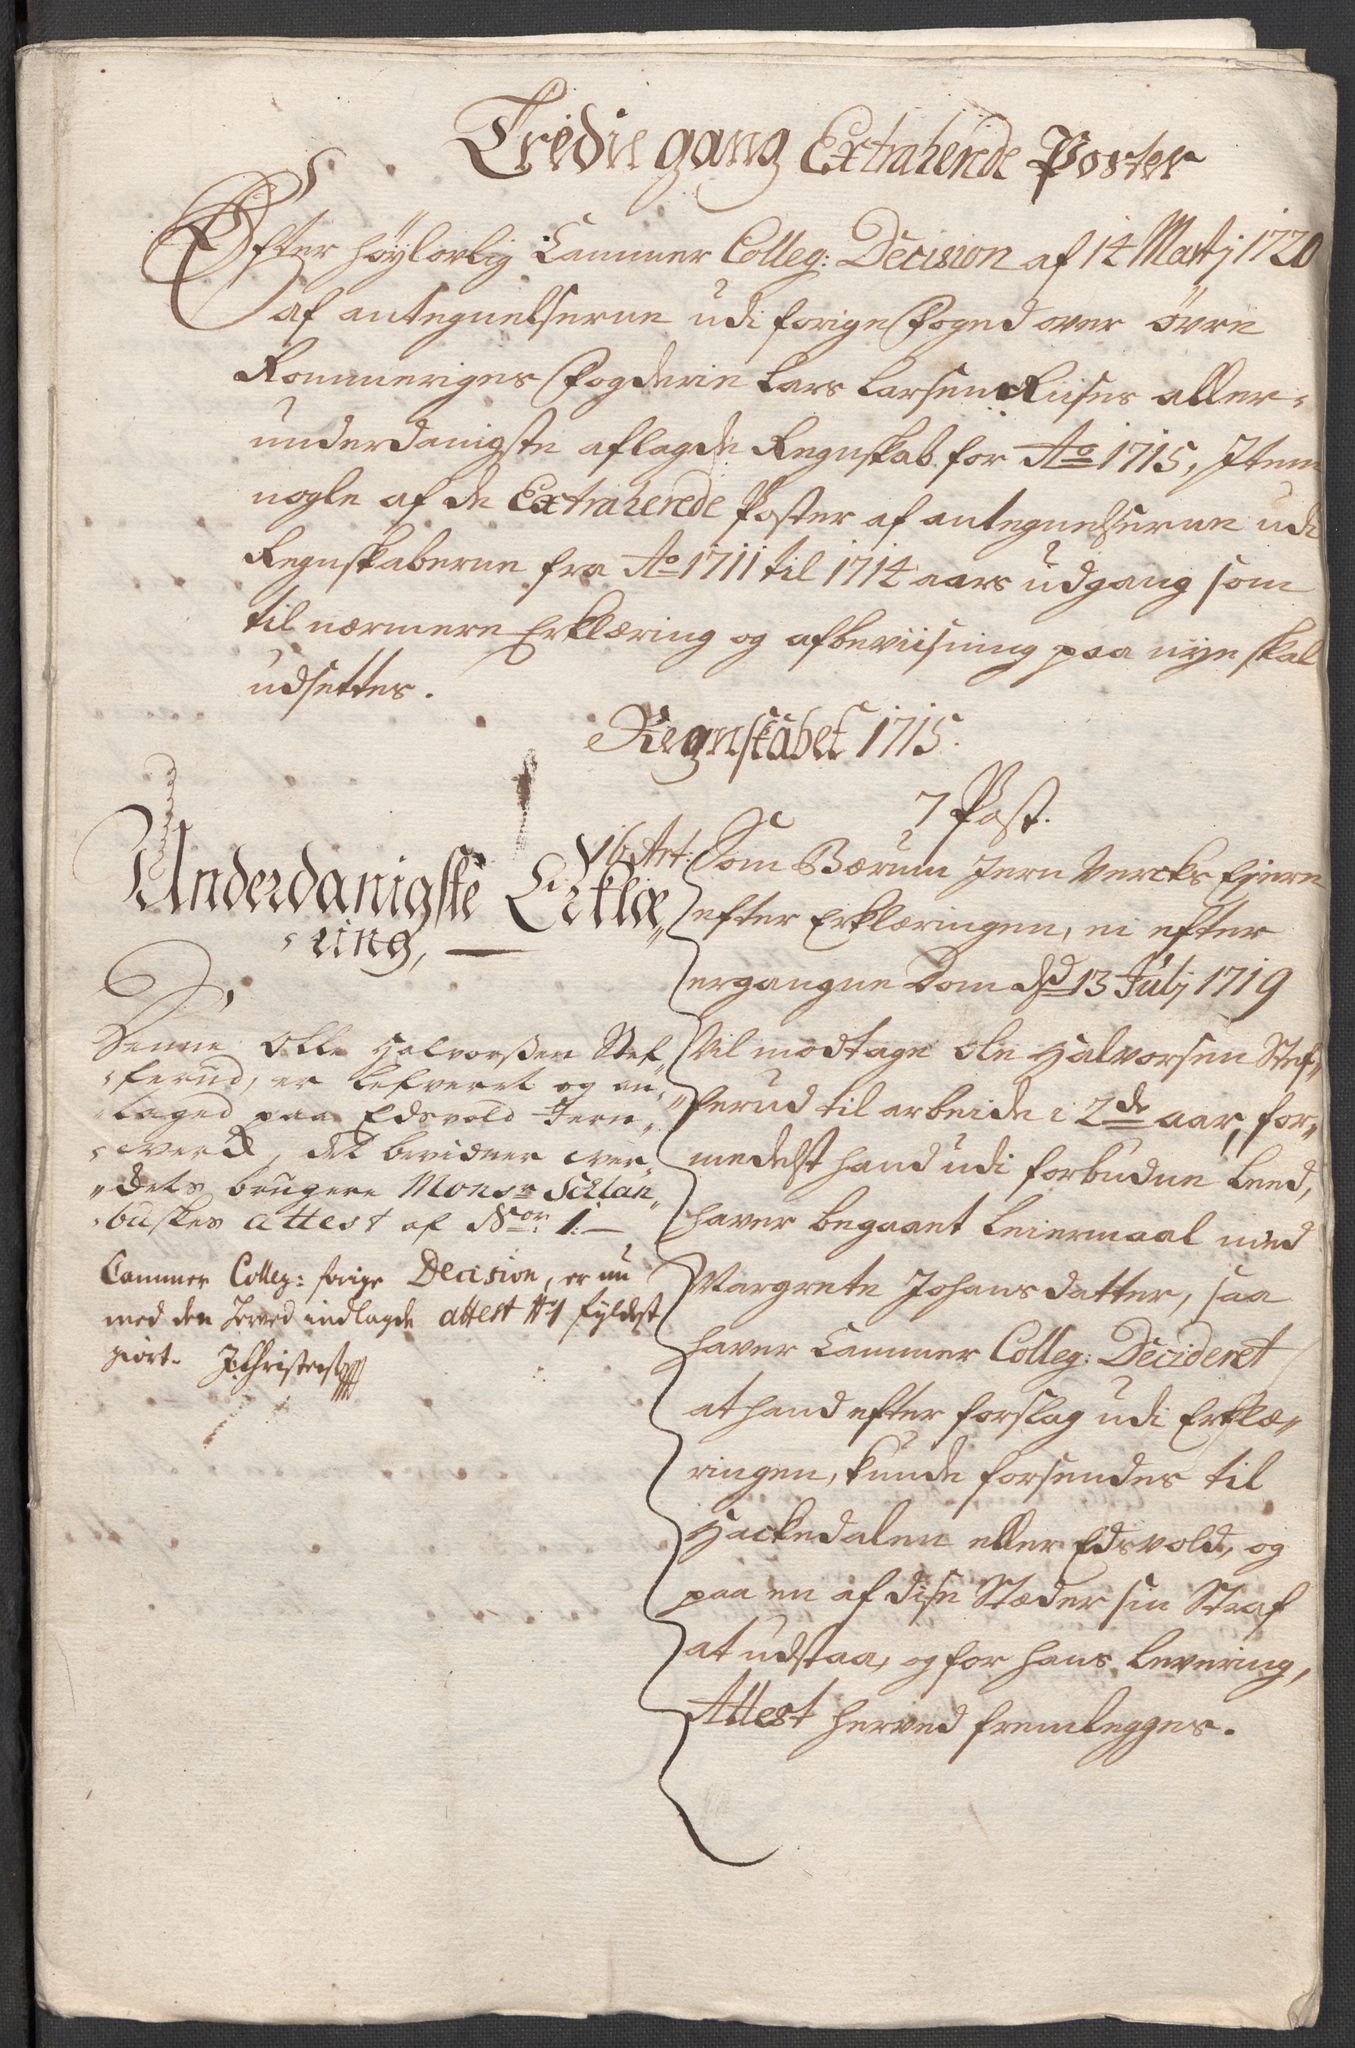 Tredie gang Extraherede Poster
Efter høylovlig Cammer Colleg: Decision af 14 Martj 1720
af antegnelserne udi forige Foged over øvre
Rommeriges Fogderie Lars Larsen Riises aller-
underdanigste aflagde Regnskab for Ao 1715, Item
nogle af de Extraherede Poster af antegnelserne udi
Regnskaberne fra Ao 1711 til 1714 aars udgang som
til nærmere Erklæring og afbeviisning paa nye skal
udsettes.
Regnskabet 1715.
7 Post.
Underdanigste Erklæ„
ring,
Denne Olle Halvorßen Stef„
ferud, er lefveret og an„
taged paa Edsvold Jern„
werck, det bevidner wer„
dets brugere Monsr Schlan„
buskes attest af No: 1.
Cammer Colleg: forige Decision, er nu
med den herved indlagde attest No 1 fyldest
giort. J: Christens
16 Art:
Som Bærum Jern Vercks Eiere
efter Erklæringen, ei efter
ergangne Dom ds 13 Julj 1719
Vil modtage Ole Halvorsen Stef„
ferud til arbeide i 2de aar, for„
medelst hand udi forbudne Leed,
haver begaaet Leiermaal med
Margrete Johansdatter, saa
haver Cammer Colleg: Decideret
at hand efter forslag udi Erklæ„
ringen, kunde forsendes til
Hackedalen eller Edsvold, og
paa en af disse Stæder sin Straf
at udstaa, og for hans Levering,
Attest herved fremlegges.